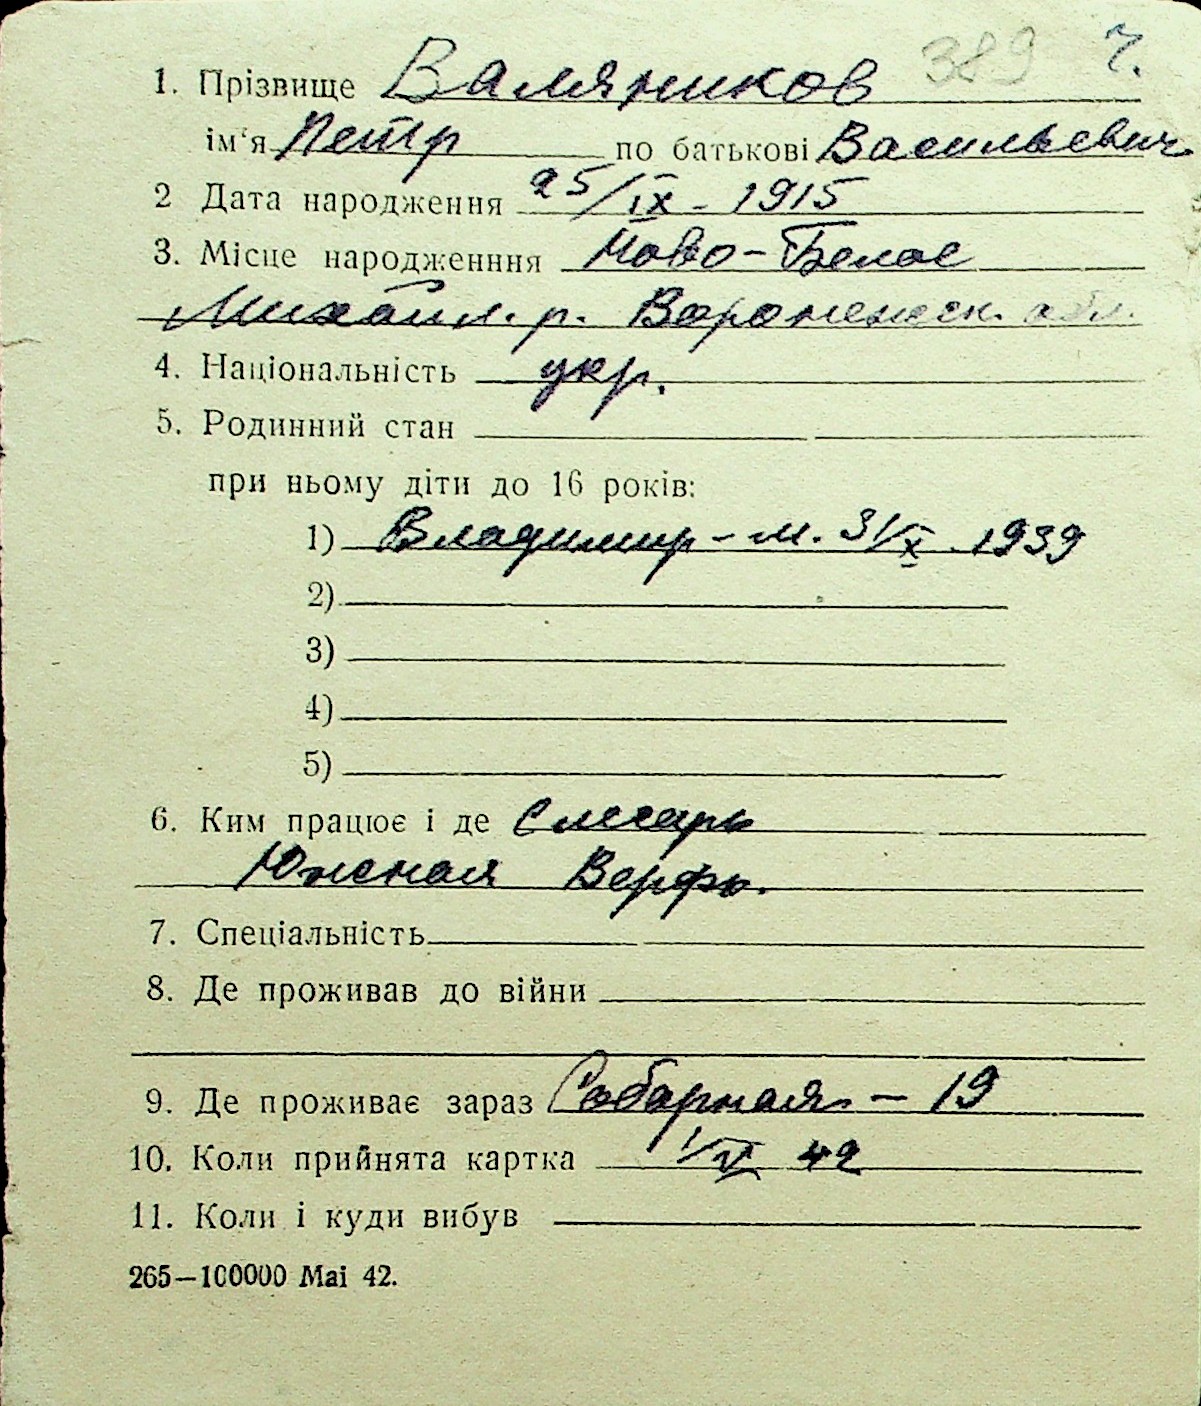 389 ч.
1. Прізвище Валяников
ім'я Петр по батькові Васильевич
2 Дата народження 25/IX - 1915
3. Місце народженння Ново-Белое
Михайл. р. Воронежск. обл.
4. Національність укр.
5. Родинний стан
при ньому діти до 16 років:
1) Владимир - м. 31/X 1939
2)
3)
4)
5)
6. Ким працює і де Слесарь
Южная Верфь.
7. Спеціальність
8. Де проживав до війни
9. Де проживає зараз Соборная - 19
10. Коли прийнята картка 1/VI 42
11. Коли і куди вибув
265—100000 Mai 42.